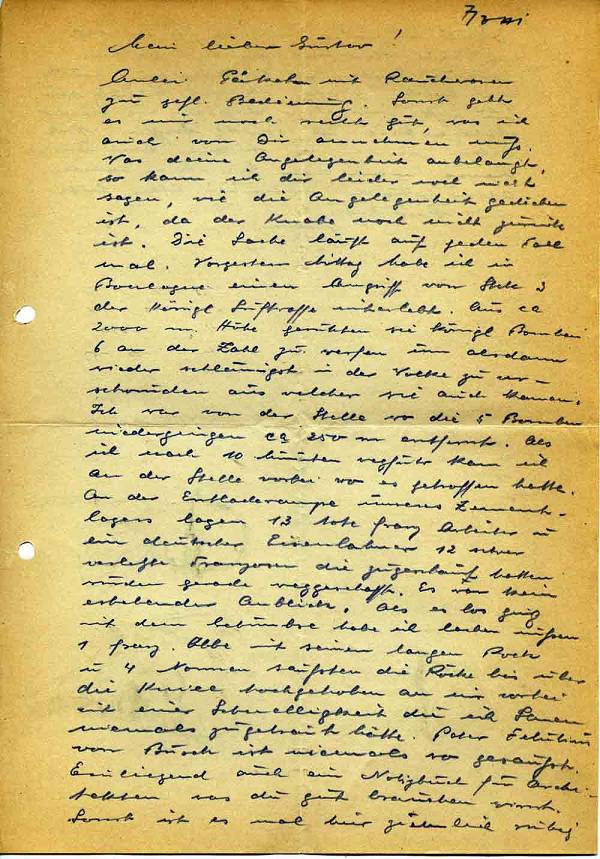 Mein lieber Gustav!
Anbei Päckchen mit Rauchwaren
zu gefl. Bedienung. Sonst geht
es mir noch recht gut, was ich
auch von Dir annehmen muß.
Was deine Angelegenheit anbelangt,
so kann ich dir leider noch nicht
sagen, wie die Angelegenheit gediehen
ist, da der Knabe noch nicht zurück
ist. Die Sache läuft auf jeden Fall
mal. Vorgestern Mittag habe ich in
Boulogne einen Angriff von Stck 3
der königl Luftwaffe miterlebt. Aus ca
2000 m. Höhe geruhten sie königl Bomben
6 an der Zahl zu werfen um alsdann
wieder schleunigst in der Wolke zu ver-
schwinden aus welcher sie auch kamen.
Ich war von der Stelle wo die 5 Bomben
niedergingen ca 250 m entfernt. Als
ich nach 10 Minuten wegfuhr kam ich
an der Stelle vorbei wo es getroffen hatte.
An der Entladerampe unseres Zement-
lagers lagen 13 tote franz Arbeiter u
ein deutscher Eisenbahner 12 schwer
verletzte Franzosen die
wurden gerade weggeschafft. Es war kein
erhebender Anblick. Als es los ging
mit dem habe ich lachen müssen
1 franz. Abbe mit seinen langen Rock
u 4 Nonnen sausten die Röcke bis über
die Kniee hochgehoben an mir vorbei
mit einer Schnelligkeit die ich Ihnen
niemals zugetraut hätte. Pater
von Busch ist niemals so gesaust.
Einliegend auch ein Notizbuch für Archi-
tekten was du gut brauchen wirst.
Sonst ist es mal hier ziemlich ruhig